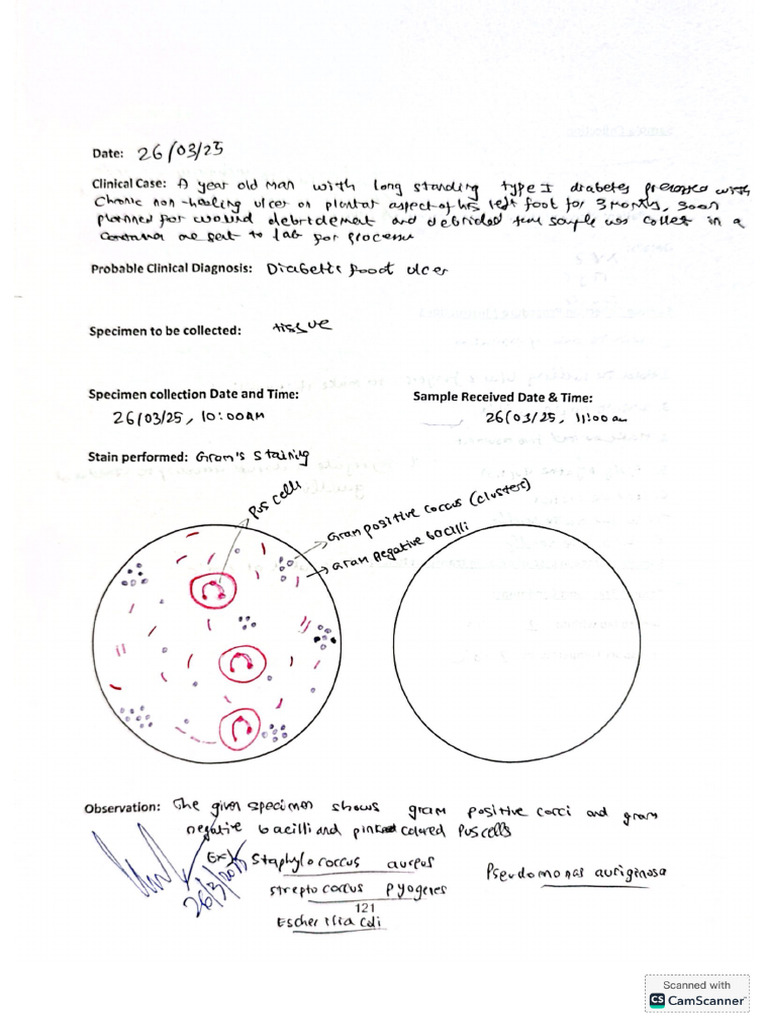 Date: 26/03/25
Clinical Case: A year old man with long standing type I diabetes presented with
chronic non-healing ulcer on plantar aspect of his left foot for 3 months, soon
planned for wound debridement and debrided sample was collet in a
container sent to lab for
Probable Clinical Diagnosis: Diabetic foot ulcer
Specimen to be collected: tissue
Specimen collection Date and Time:
26/03/25, 10:00AM
Sample Received Date & Time:
26/03/25, 11:00am
Stain performed: Gram's Staining
Pus cells
Gram positive coccus (clusters)
Gram negative bacilli
Observation: The given specimen shows gram positive cocci and gram
negative bacilli and pink colored Pus cells
Ex) Staphylococcus aureus
Pseudomonas auriginosa
streptococcus pyogenes
121
Escherilia coli
Scanned with
CS CamScanner